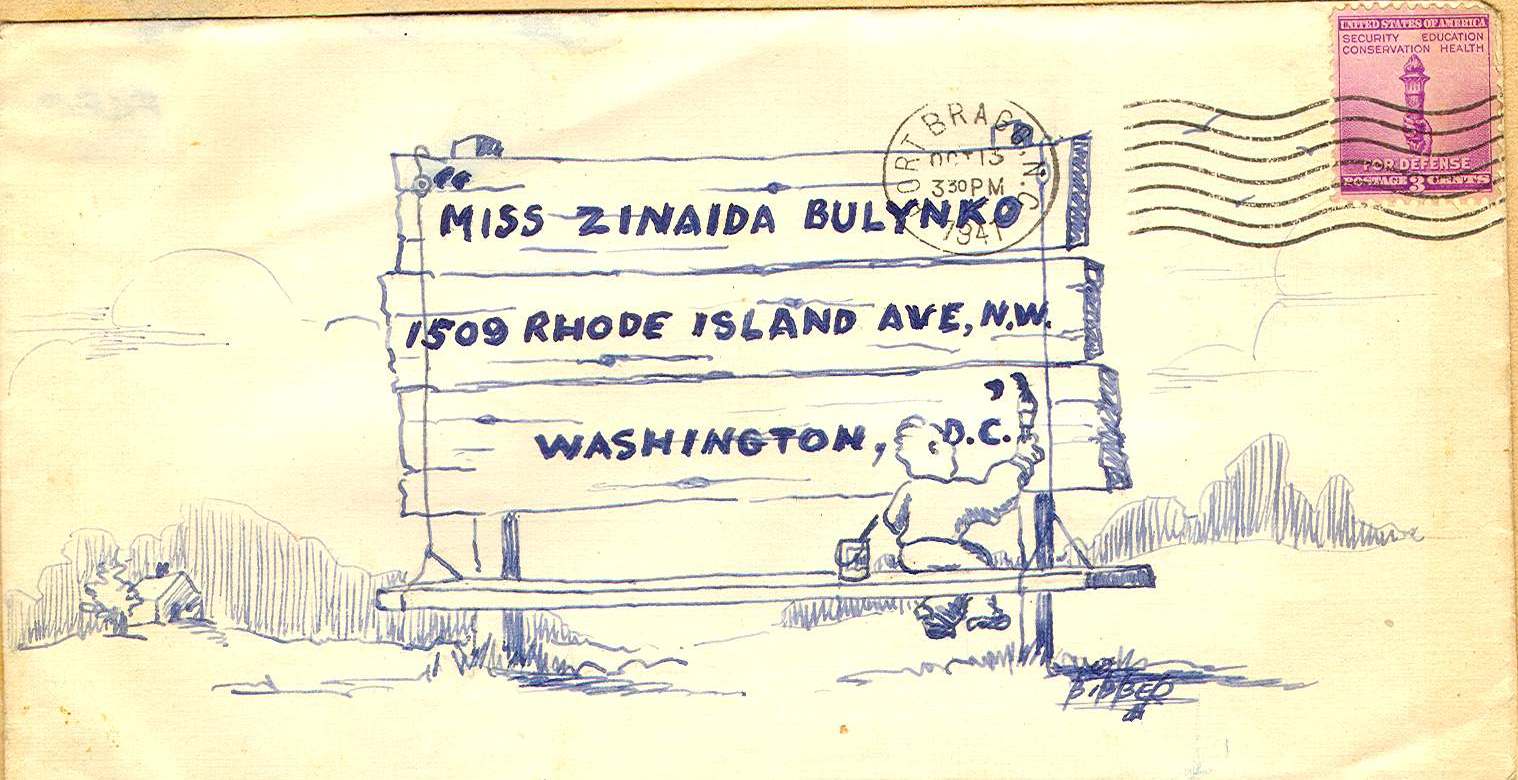 UNITED STATES OF AMERICA
SECURITY EDUCATION
CONSERVATION HEALTH
FOR DEFENSE
POSTAGE 3 CENTS
FORT BRAGG, N.C.
OCT 13
3 30 PM
1941
“MISS ZINAIDA BULYNKO
1509 RHODE ISLAND AVE, N.W.
WASHINGTON, D.C.”
BIBBER